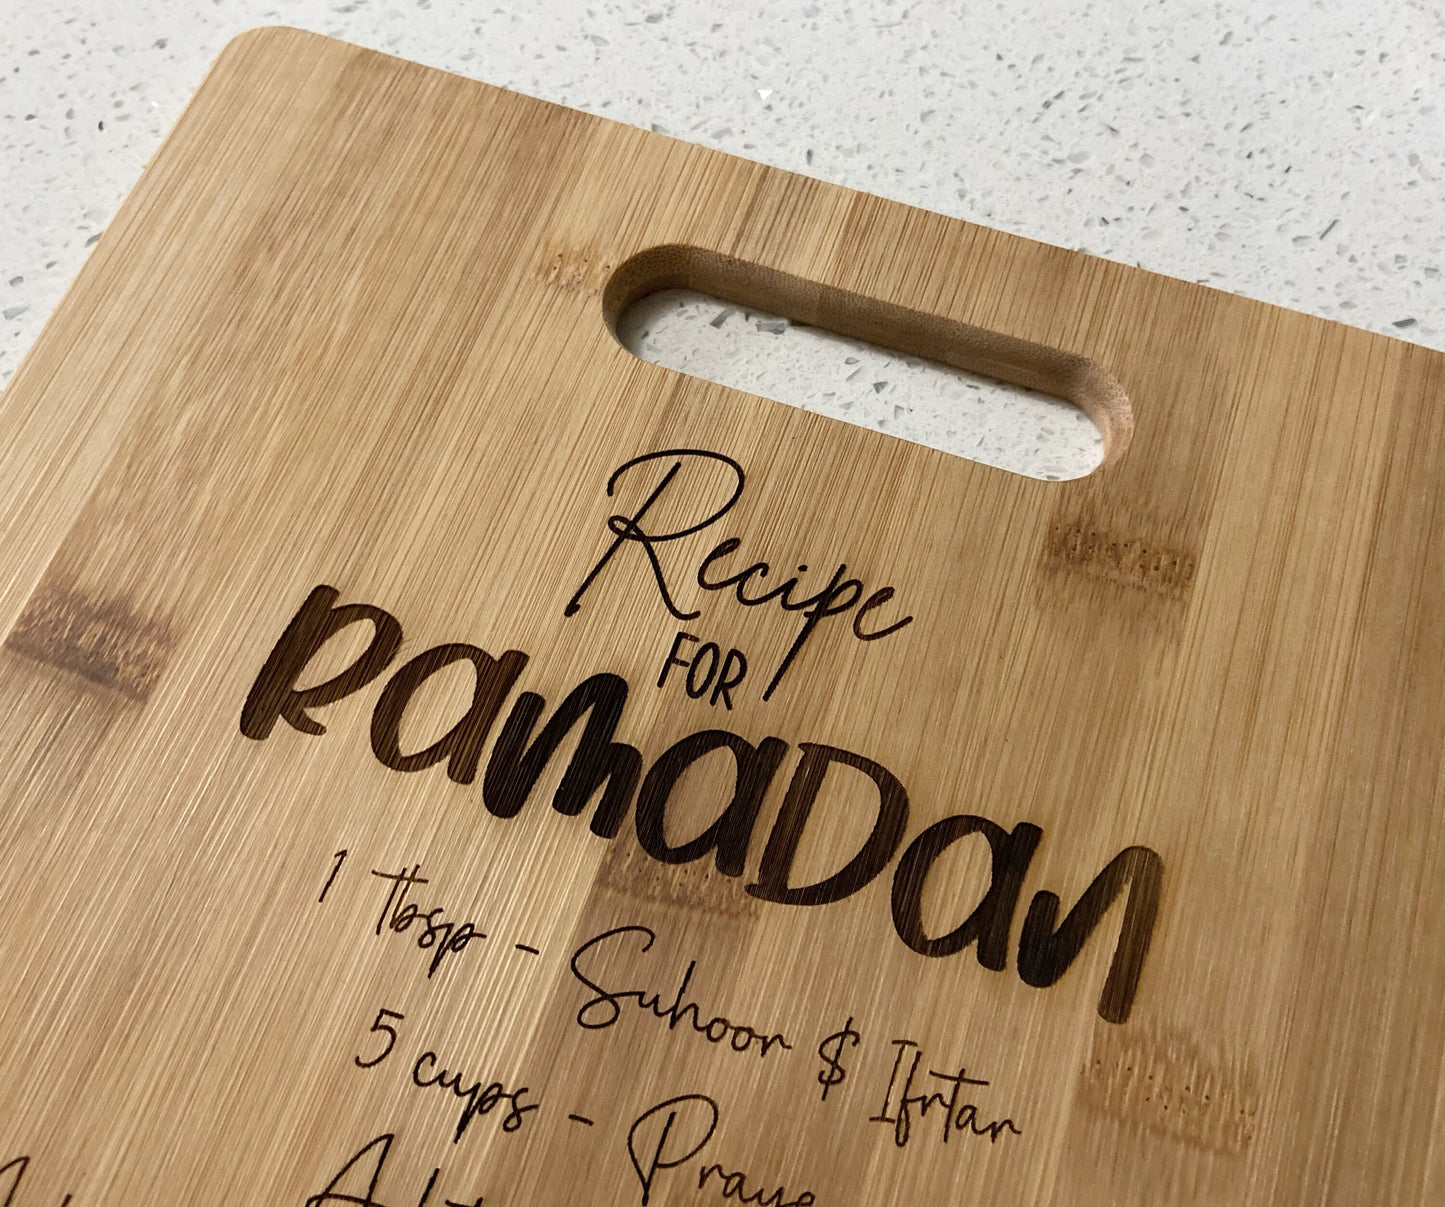 Recipe
FOR
RAMADAN
1 tbsp - Suhoor $ Ifrtar
5 cups -